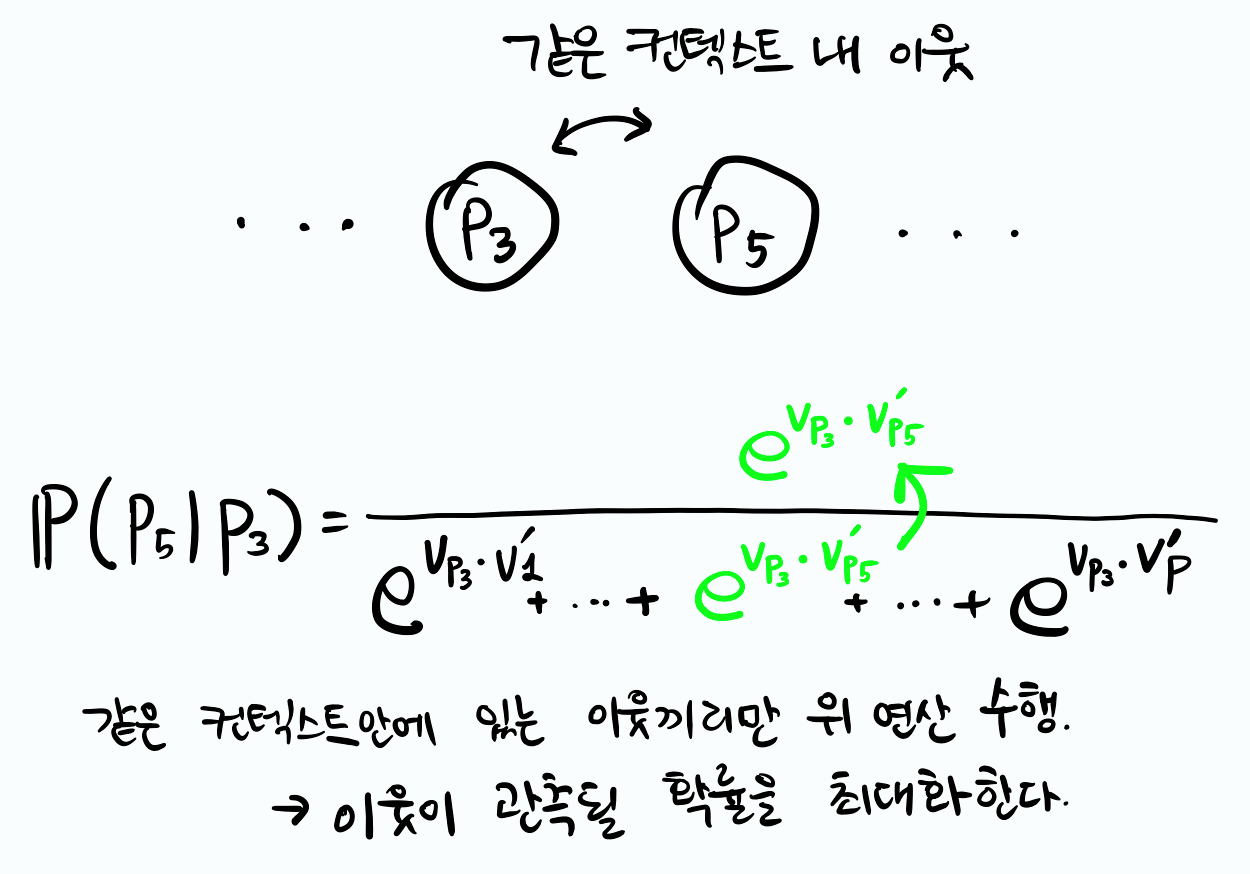 같은 컨텍스트 내 이웃
. . . P₃ P₅ . . .
e^{V_{P₃} · V′_{P₅}}
ℙ(P₅|P₃) =
e^{V_{P₃} · V′1} + ... + e^{V_{P₃} · V′_{P₅}} + ... + e^{V_{P₃} · V′_P}
같은 컨텍스트안에 있는 이웃끼리만 위 연산 수행.
→ 이웃이 관측될 확률을 최대화한다.